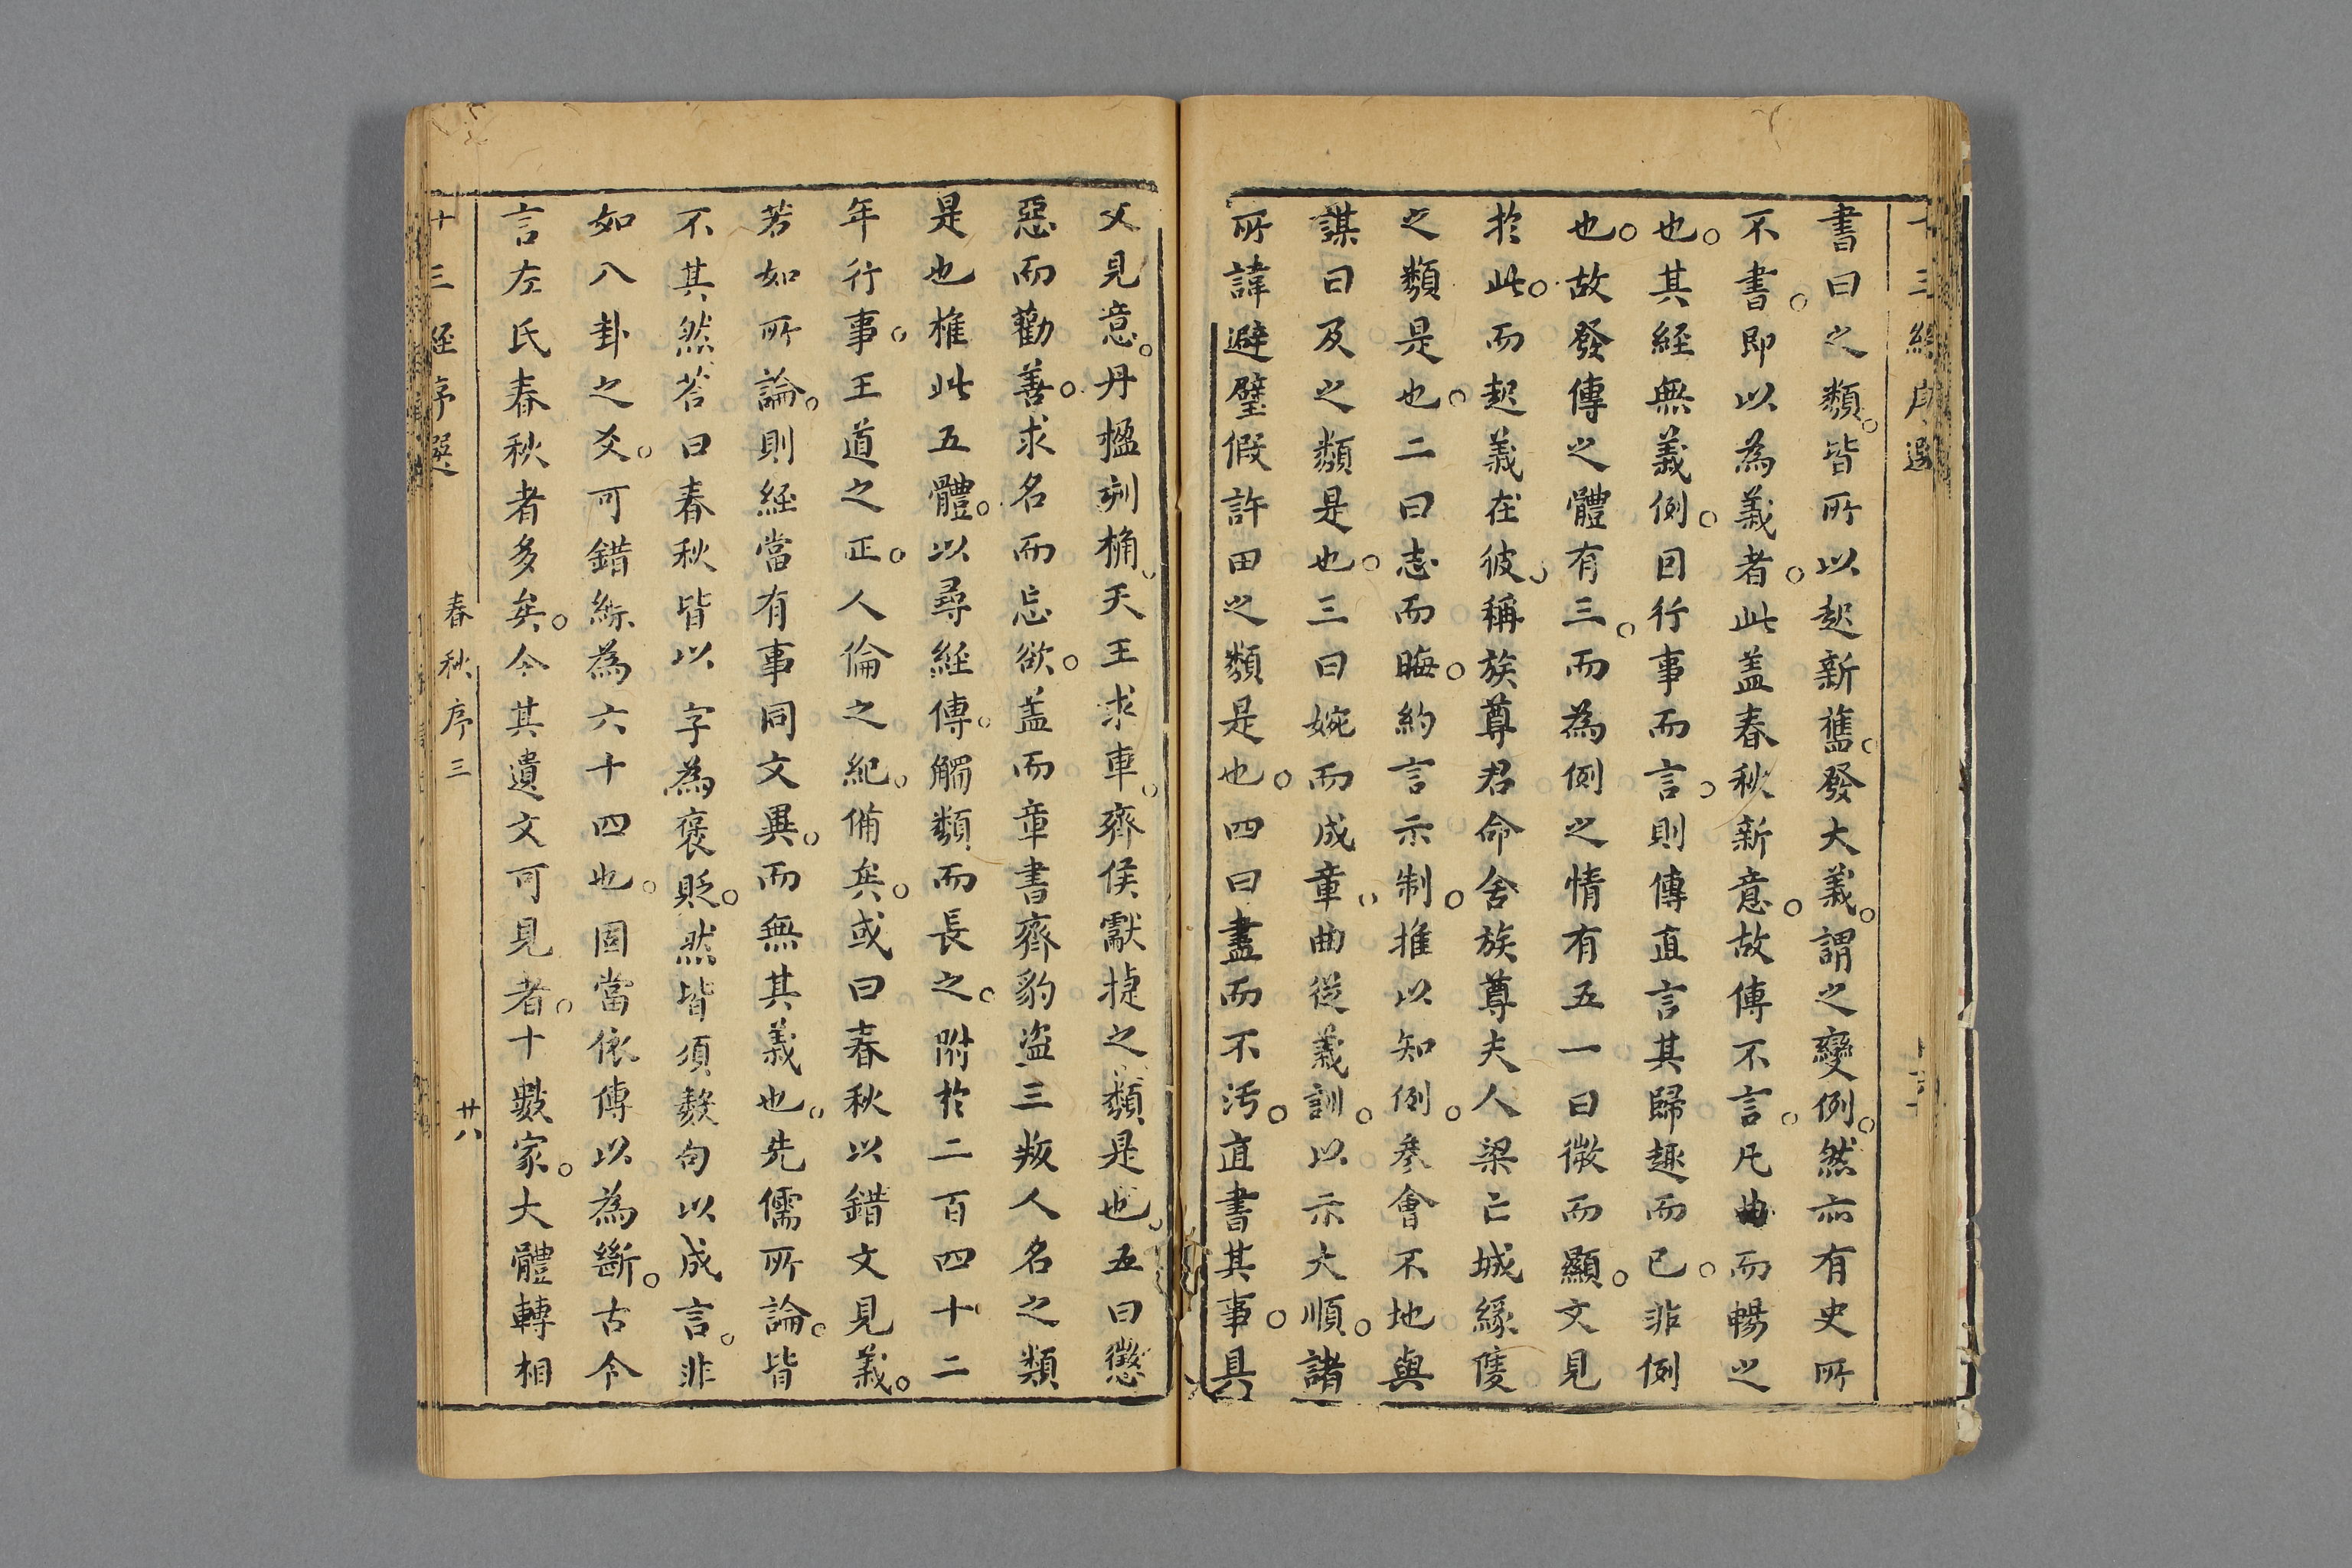 十三經序選
書曰之類。皆所以起新舊。發大義。謂之變例。然亦有史所
不書。即以為義者。此盖春秋新意。故傳不言。凡曲而暢之
也。其經無義例。因行事而言。則傳直言其歸趣而已。非例
也。故發傳之體有三。而為例之情有五一曰微而顯。文見
於此。而起義在彼。稱族尊君命舍族尊夫人梁亡城緣陵
之類是也。二曰志而晦。約言示制。推以知例。參會不地與
謀曰及之類是也。三曰婉而成章。曲從義訓。以示大順。諸
所諱避璧假許田之類是也。四曰盡而不汚。直書其事。具
文見意。丹楹刻桷。天王求車。齊侯獻捷之類是也。五曰懲
惡而勸善。求名而忘欲。盖而章書齊豹盜三叛人名之類
是也推此五體。以尋經傳。觸類而長之。附於二百四十二
年行事。王道之正。人倫之紀。備矣。或曰春秋以錯文見義。
若如所論。則經當有事同文異。而無其義也。先儒所論。皆
不其然荅曰春秋皆以字為褒貶。然皆須數句以成言。非
如八卦之爻。可錯綜為六十四也。固當依傳以為斷。古今
言左氏春秋者多矣。今其遺文可見者。十數家。大體轉相
十三經序選 春秋序三 廿八